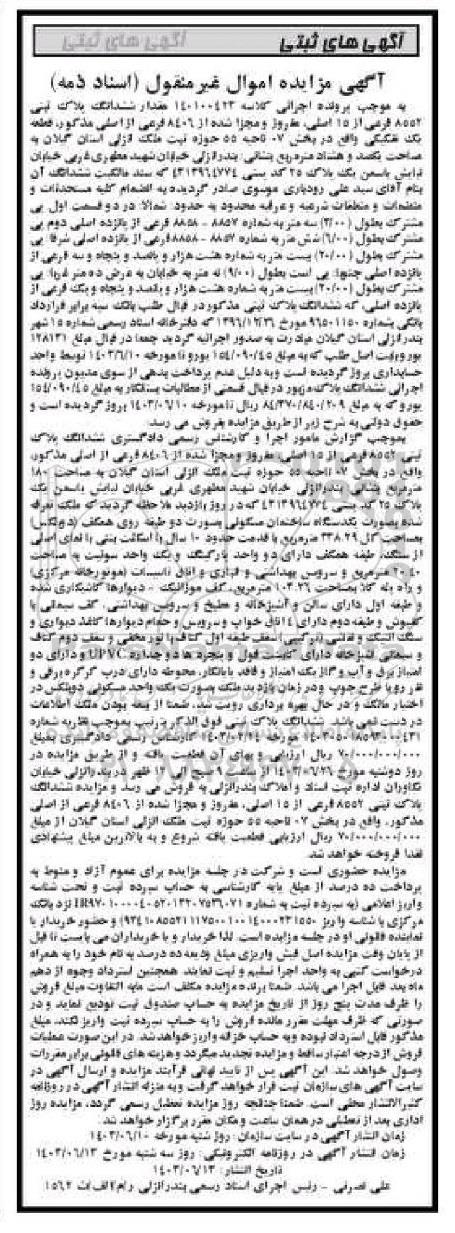 آگهی های ثبتی
آگهی مزایده اموال غیرمنقول (اسناد ذمه)
به موجب پرونده اجرائی کلاسه ۱۴۰۱۰۰۴۲۳ مقدار ششدانگ پلاک ثبتی
۸۵۵۲ فرعی از ۱۵ اصلی، مفروز و مجزا شده از ۸۴۰۶ فرعی از اصلی مذکور، قطعه
یک تفکیکی واقع در بخش ۰۷ ناحیه ۵۵ حوزه ثبت ملک انزلی استان گیلان به
مساحت یکصد و هشتاد مترمربع بنشانی: بندرانزلی خیابان شهید مطهری غربی خیابان
نیایش یاسمن یک پلاک ۲۵ کد پستی ۴۳۱۳۹۶۴۷۷۴ که سند مالکیت ششدانگ آن
بنام آقای سید علی رودباری موسوی صادر گردیده به انضمام کلیه مستحدثات و
متعلقات و منظمات شرعیه و عرفیه محدود به حدود: شمالا: در دو قسمت اول پی
مشترک بطول (۳/۰۰) سه متر به شماره ۸۸۵۷ - ۸۸۵۸ فرعی از پانزده اصلی دوم پی
مشترک بطول (۶/۰۰) شش متر به شماره ۸۸۵۷ - ۸۸۵۸ فرعی از پانزده اصلی شرقا پی
مشترک بطول (۲۰/۰۰) بیست متر به شماره هشت هزار و پانصد و پنجاه و سه فرعی از
پانزده اصلی جنوبا: پی است بطول (۹/۰۰) نه متر به خیابان به عرض ده متر غربا: پی
مشترک بطول (۲۰/۰۰) بیست متر به شماره هشت هزار و پانصد و پنجاه و یک فرعی از
پانزده اصلی، که ششدانگ پلاک ثبتی مذکور در قبال طلب بانک سپه برابر قرارداد
بانکی بشماره ۹۶۵۰۱۱۵۰ مورخ ۱۳۹۶/۱۲/۲۶ که دفترخانه اسناد رسمی شماره ۱۵ شهر
بندرانزلی استان گیلان مبادرت به صدور اجرائیه گردید جمعا در قبال مبلغ ۱۲۸۱۳۱
یورو بابت اصل طلب که به مبلغ ۱۵۴/۰۹۰/۴۵ یورو تا مورخه ۱۴۰۳/۶/۱۰ توسط واحد
حسابداری بروز گردیده است و به دلیل عدم پرداخت بدهی از سوی مدیون پرونده
اجرائی ششدانگ پلاک مزبور در قبال قسمتی از مطالبات بستانکار به مبلغ ۱۵۴/۰۹۰/۴۵
یورو که به مبلغ ۸۴/۳۷۰/۸۴۰/۲۰۹ ریال تا مورخه ۱۴۰۳/۰۶/۱۰ بروز گردیده است و
حقوق دولتی به شرح زیر از طریق مزایده بفروش می رسد:
بموجب گزارش مامور اجرا و کارشناس رسمی دادگستری ششدانگ پلاک
ثبتی ۸۵۵۲ فرعی از ۱۵ اصلی، مفروز و مجزا شده از ۸۴۰۶ فرعی از اصلی مذکور،
واقع در بخش ۰۷ ناحیه ۵۵ حوزه ثبت ملک انزلی استان گیلان به مساحت ۱۸۰
مترمربع بنشانی: بندرانزلی خیابان شهید مطهری غربی خیابان نیایش یاسمن یک
پلاک ۲۵ کد پستی ۴۳۱۳۹۶۴۷۷۴ که در روز بازدید ملاحظه گردید که ملک تعرفه
شده بصورت یکدستگاه ساختمان مسکونی بصورت دو طبقه روی همکف (دوبلکس)
بمساحت کل ۳۳۸.۲۹ مترمربع با قدمت حدود ۱۰ سال با اسکلت بتنی با نمای اصلی
از سنگ، طبقه همکف دارای دو واحد پارکینگ و یک واحد سوئیت به مساحت
۲۰.۴۰ مترمربع و سرویس بهداشتی و انباری و اتاق تاسیسات (موتورخانه مرکزی)
و راه پله کلا بمساحت ۱۰۳.۲۶ مترمربع، کف موزائیک - دیوارها کاشیکاری شده
و طبقه اول دارای سالن و آشپزخانه و مطبخ و سرویس بهداشتی، کف سیمانی با
کفپوش و طبقه دوم دارای ۴ اتاق خواب و سرویس و حمام دیوارها کاغذ دیواری و
سنگ آنتیک و نقاشی (ترکیبی) سقف طبقه اول کناف با نور مخفی و سقف دوم کناف
و سیمانی آشپزخانه دارای کابینت فول و پنجره ها دو جداره UPVC و دارای دو
امتیاز برق و آب و گاز یک امتیاز و فاقد پایانکار، محوطه دارای درب کرکره برقی و
نفر رو با طرح چوب و در زمان بازدید ملک بصورت یک واحد مسکونی دوبلکس در
اختیار مالک و در حال بهره برداری رویت شد، ضمنا از بیمه بودن ملک اطلاعات
در دست نمی باشد. ششدانگ پلاک ثبتی فوق الذکر بترتیب بموجب نظریه شماره
مورخه ۱۴۰۳/۰۲/۱۴ کارشناس رسمی دادگستری بمبلغ
۷۰/۰۰۰/۰۰۰/۰۰۰ ریال ارزیابی و بهای آن قطعیت یافته و از طریق مزایده در
روز دوشنبه مورخ ۱۴۰۳/۰۶/۲۶ از ساعت ۹ صبح الی ۱۲ ظهر در بندرانزلی خیابان
تکاوران اداره ثبت اسناد و املاک بندرانزلی به فروش می رسد و مزایده ششدانگ
پلاک ثبتی ۸۵۵۲ فرعی از ۱۵ اصلی، مفروز و مجزا شده از ۸۴۰۶ فرعی از اصلی
مذکور، واقع در بخش ۰۷ ناحیه ۵۵ حوزه ثبت ملک انزلی استان گیلان از مبلغ
۷۰/۰۰۰/۰۰۰/۰۰۰ ریال ارزیابی قطعیت یافته شروع و به بالاترین مبلغ پیشنهادی
نقدا فروخته خواهد شد.
مزایده حضوری است و شرکت در جلسه مزایده برای عموم آزاد و منوط به
پرداخت ده درصد از مبلغ پایه کارشناسی به حساب سپرده ثبت و تحت شناسه
واریز اعلامی (به سپرده ثبت به شماره نزد بانک
مرکزی با شناسه واریز و حضور خریدار یا
نماینده قانونی او در جلسه مزایده است. لذا خریدار و یا خریداران می بایست تا قبل
از پایان وقت مزایده اصل فیش واریزی مبلغ ودیعه ده درصد به نام خود را به همراه
درخواست کتبی به واحد اجرا تسلیم و ثبت نمایند. همچنین استرداد وجوه از دهم
ماه بعد قابل اجرا می باشد. ضمنا برنده مزایده مکلف است مابه التفاوت مبلغ فروش
را ظرف مدت پنج روز از تاریخ مزایده به حساب صندوق ثبت تودیع نماید و در
صورتی که ظرف مهلت مقرر مانده فروش را به حساب سپرده ثبت واریز نکند، مبلغ
مذکور قابل استرداد نبوده و به حساب خزانه واریز خواهد شد. در این صورت عملیات
فروش از درجه اعتبار ساقط و مزایده تجدید میگردد و هزینه های قانونی برابر مقررات
وصول خواهد شد. این آگهی پس از تایید نهائی فرآیند مزایده و ارسال آگهی در
سایت آگهی های سازمان ثبت قرار خواهد گرفت و به منزله انتشار آگهی در روزنامه
کثیرالانتشار محلی است. ضمنا چنانچه روز مزایده تعطیل رسمی گردد، مزایده روز
اداری بعد از تعطیلی در همان ساعت و مکان مقرر برگزار خواهد شد.
زمان انتشار آگهی در سایت سازمان: روز شنبه مورخه ۱۴۰۳/۰۶/۱۰
زمان انتشار آگهی در روزنامه الکترونیکی: روز سه شنبه مورخ ۱۴۰۳/۰۶/۱۳
تاریخ انتشار: ۱۴۰۳/۰۶/۱۳
علی نصرتی - رئیس اجرای اسناد رسمی بندرانزلی رام/۲/الف/ث ۱۵۶۲